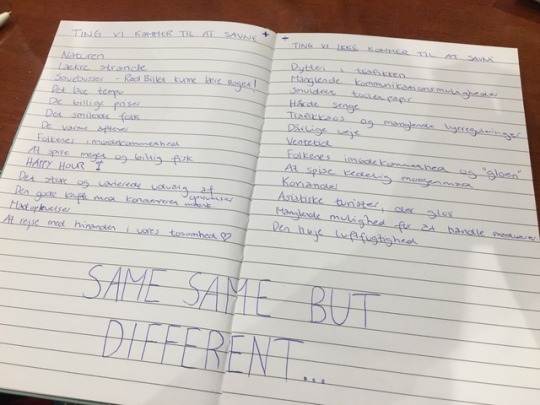 TING VI KOMMER TIL AT SAVNE +
Naturen
Lækre strande
Sovebusser - Rød Billet kunne lære noget!
Det lave tempo
De billige priser
Det smilende folk
De varme aftener
Folkenes imødekommenhed
At spise meget og billig fisk
HAPPY HOUR
Det store og varierede udvalg af
Den gode kaffe med kondenseret mælk
Madoplevelser
At rejse med hinanden i vores tosomhed ♡
- TING VI IKKE KOMMER TIL AT SAVNE
Dytteri i trafikken
Manglende kommunikationsmuligheder
Smuldrende toiletpapir
Hårde senge
Trafikkaos og manglende lysreguleringer
Dårlige veje
Ventetid
Folkenes imødekommenhed og "gloen"
At spise kedelig morgenmad
Koriander
Asiatiske turister, der glor
Manglende mulighed for at handle
Den høje luftfugtighed
SAME SAME BUT
DIFFERENT...